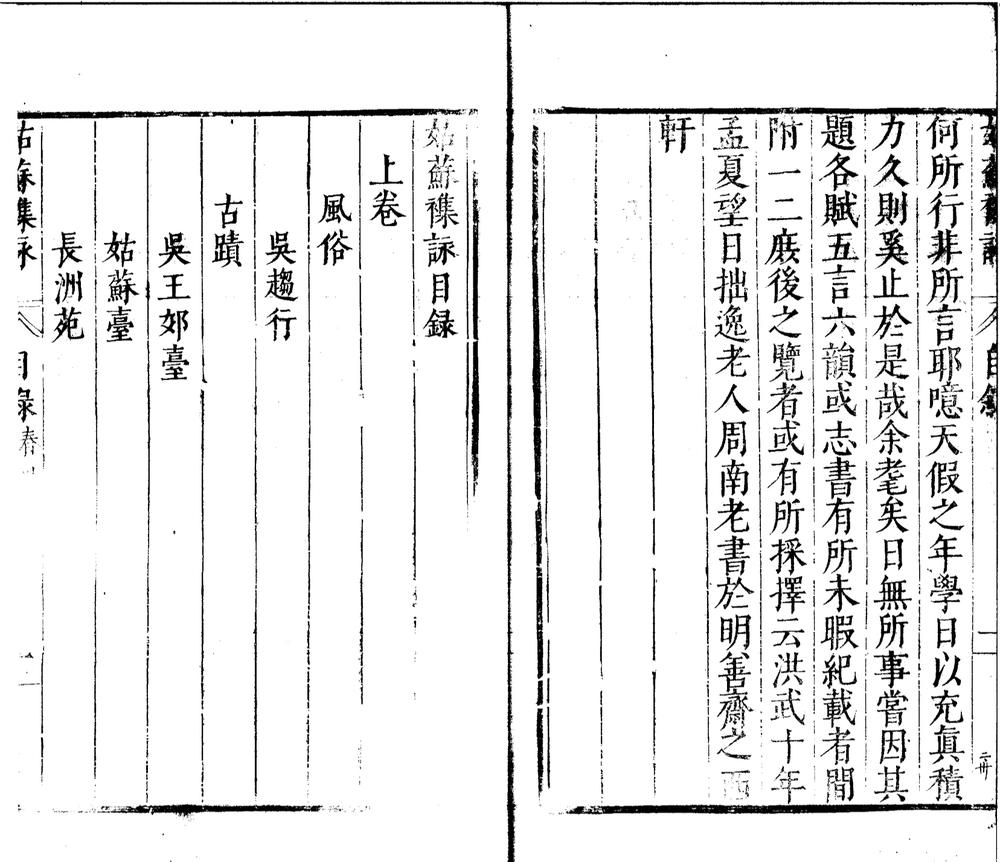 何所行非所言耶噫天假之年學日以充眞積
力久則奚止於是哉余耄矣日無所事嘗因其
題各賦五言六韻或志書有所未暇紀載者間
附一二庻後之覽者或有所採擇云洪武十年
孟夏望日拙逸老人周南老書於明善齋之西
軒
姑蘇襍詠目録
上卷
風俗
吳趨行
古蹟
吳王郊臺
姑蘇臺
長洲苑
姑蘇集詠 目錄